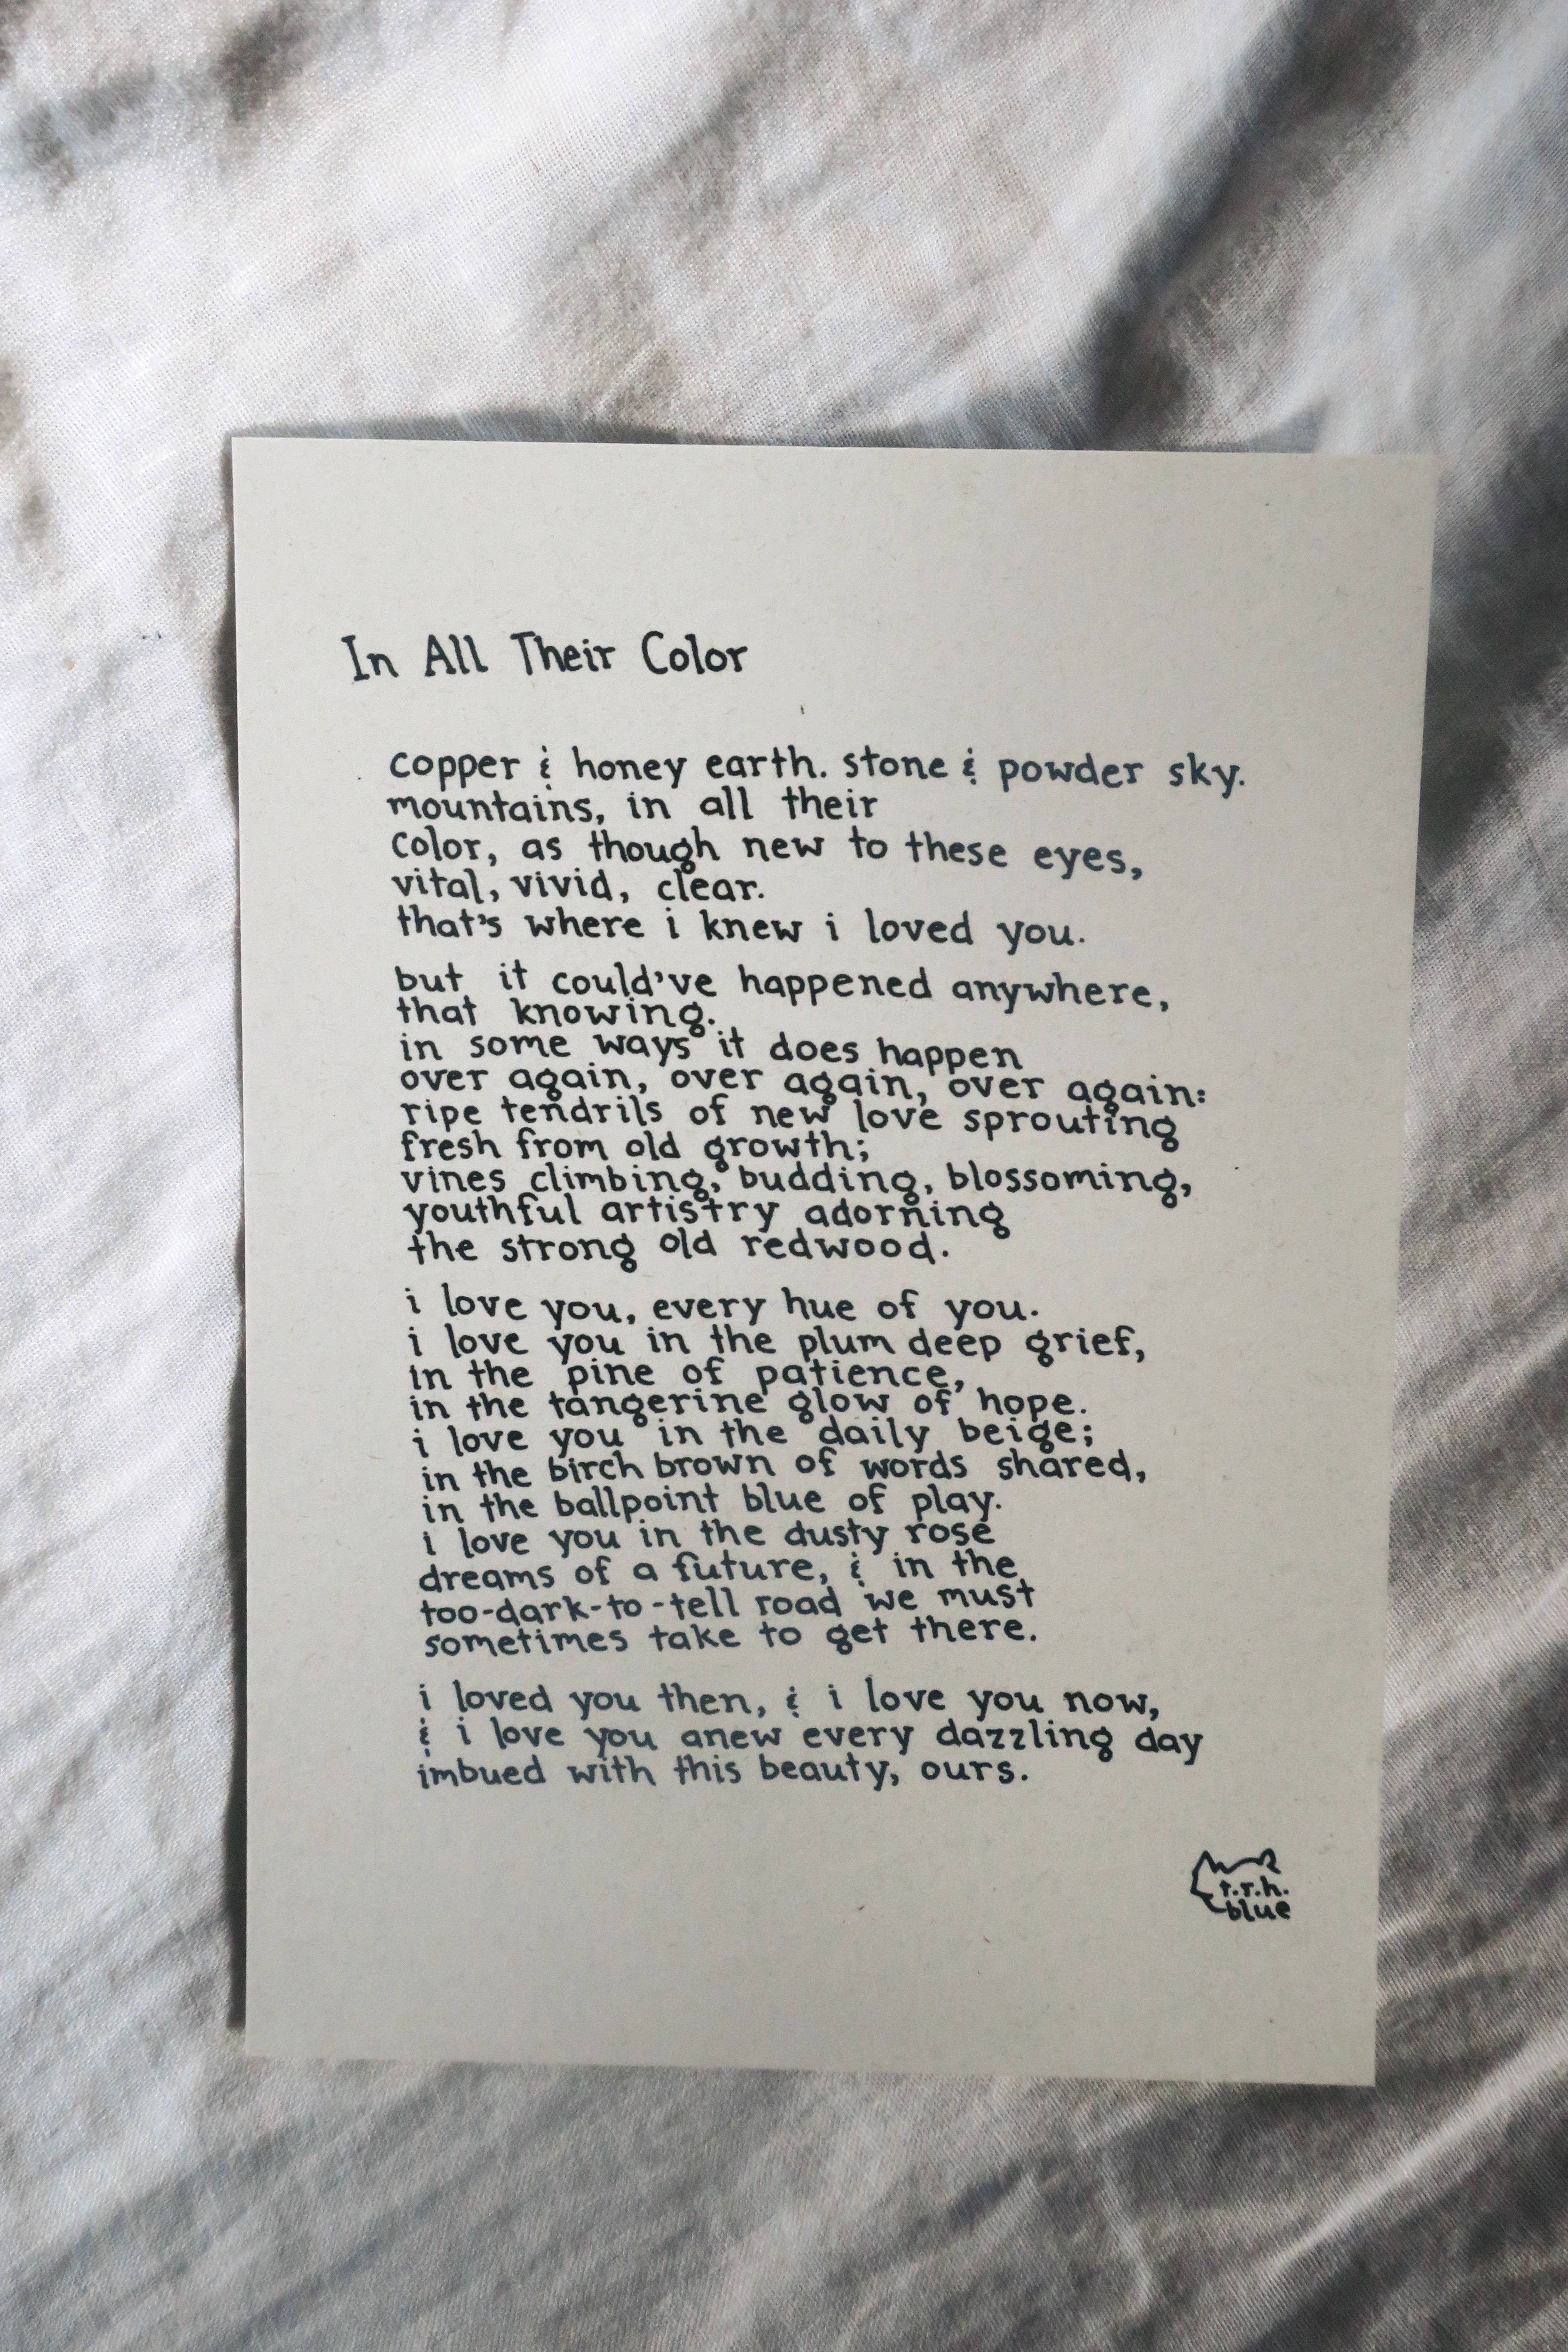 In All Their Color
copper & honey earth. stone & powder sky.
mountains, in all their
color, as though new to these eyes,
vital, vivid, clear.
that's where i knew i loved you.
but it could've happened anywhere,
that knowing.
in some ways it does happen
over again, over again, over again:
ripe tendrils of new love sprouting
fresh from old growth;
vines climbing, budding, blossoming,
youthful artistry adorning
the strong old redwood.
i love you, every hue of you.
i love you in the plum deep grief,
in the pine of patience,
in the tangerine glow of hope.
i love you in the daily beige;
in the birch brown of words shared,
in the ballpoint blue of play.
i love you in the dusty rose
dreams of a future, & in the
too-dark-to-tell road we must
sometimes take to get there.
i loved you then, & i love you now,
& i love you anew every dazzling day
imbued with this beauty, ours.
t.r.h.
blue